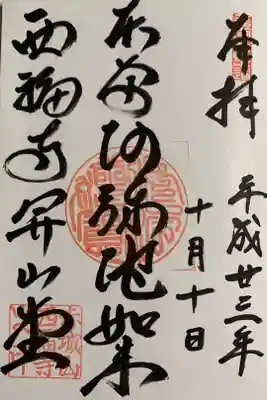 奉拝
平成廿三年
十月十日
本尊阿弥陀如来
西福寺開山堂